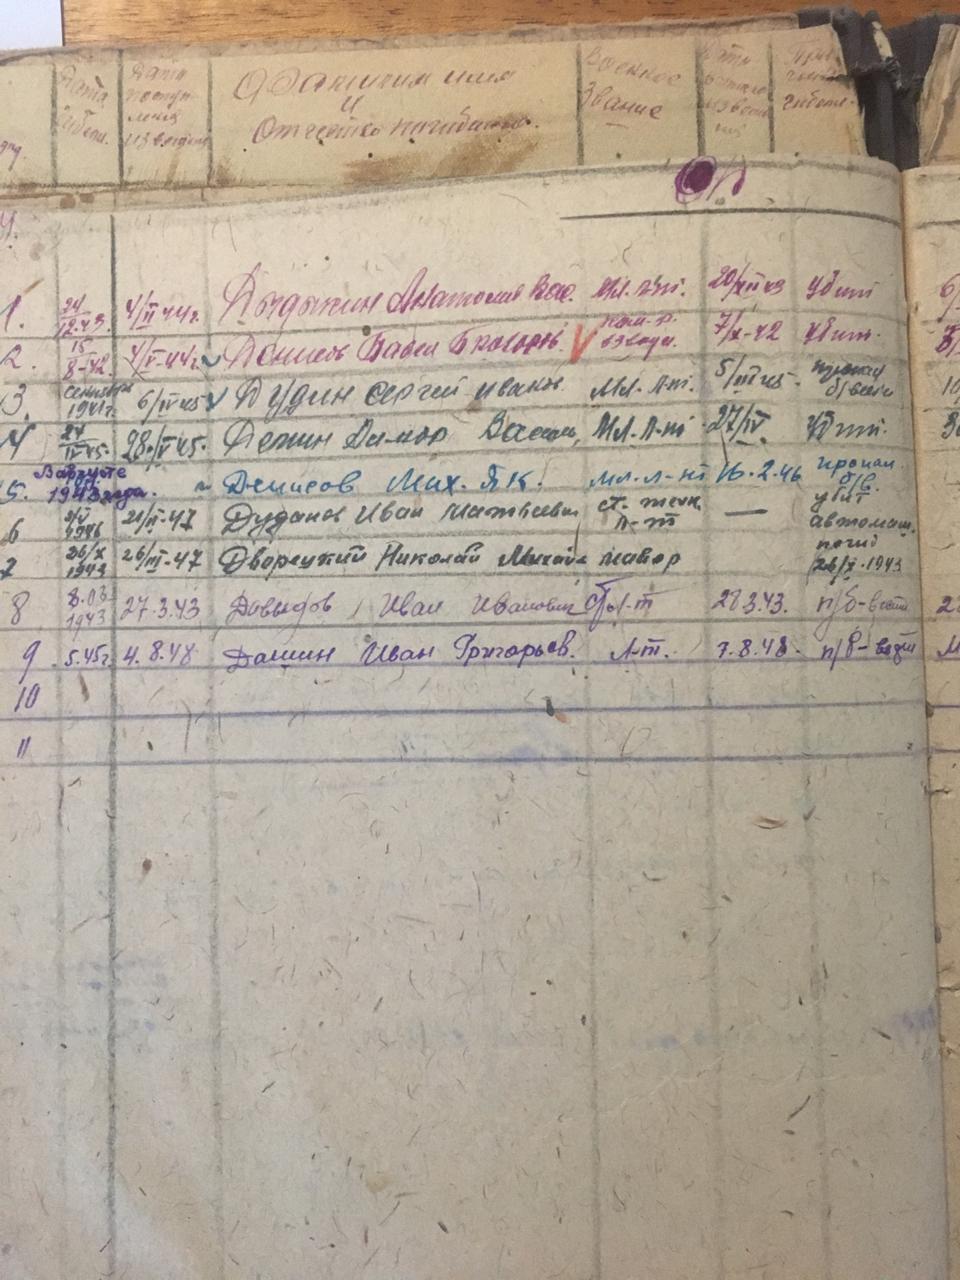 Дата гибели. Дата поступления извещения Фамилия имя и отчество погибшего. Военное звание Причина гибели.
1. 24/12-43. 4/II-44г. Анатолий Вас. Мл. л-т. 20/XII-43 убит
2. 15/8-42. 4/V-44г. Денисов Павел ком-р. взвода. 7/X-42 убит.
3. 1941г. 6/IV-45 Дудин Сергей Иванов Мл. л-т. 5/III-45. б/вести
4 24/IV-45. 28/V-45. Демин Васил. Мл. л-т 27/IV убит.
5. В августе 1943 года. Денисов Мих. Як. мл. л-нт 16.2.46 пропал. б/в.
6 1946 21/II-47 Дуданов Иван Матвеевич ст. техн. л-т — убит автомаш.
7 26/X 1943 26/III-47 Дворецкий Николай Михайл майор погиб 26/X-1943
8 8.03 1943 27.3.43 Давыдов Иван Иванович 28.3.43. п/б-вести
9 5.45г. 4.8.48 Дашин Иван Григорьев. Л-т. 7.8.48. п/б-вести
10
11